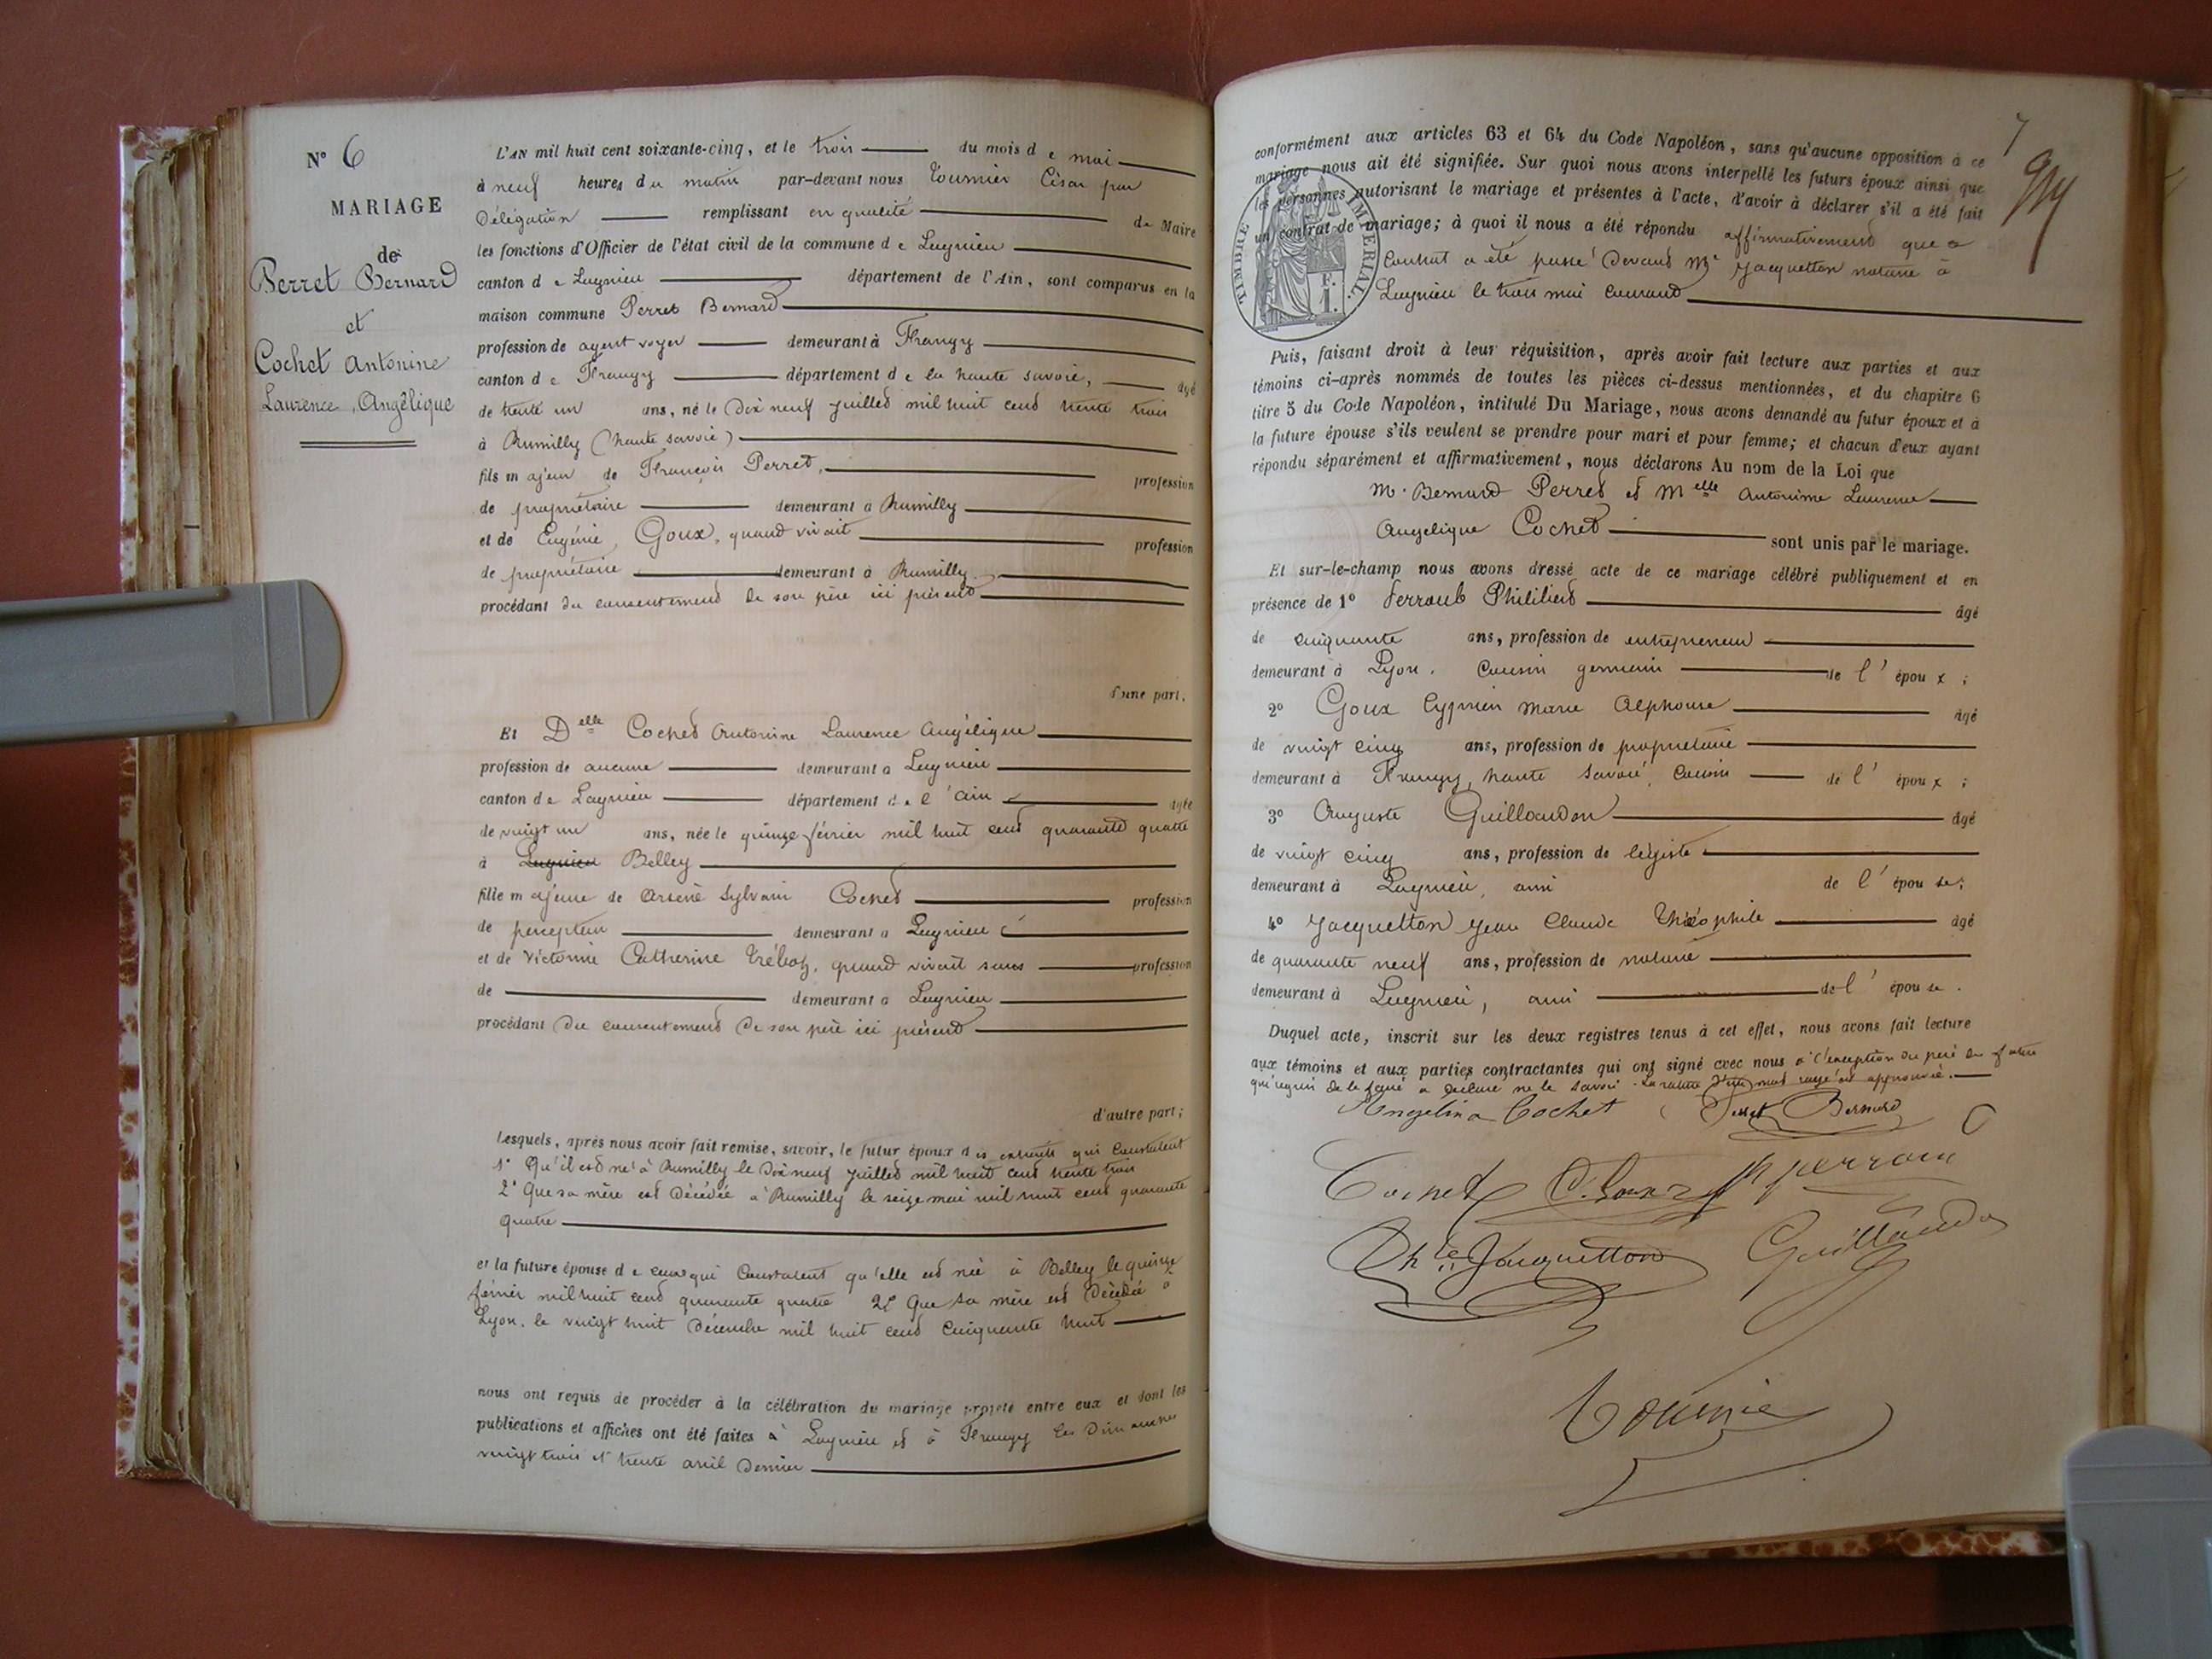 N° 6
MARIAGE
de
Perret Bernard
et
Cochet Antonine
Laurence Angélique
L'AN mil huit cent soixante-cinq, et le trois du mois de mai
à neuf heures du matin par-devant nous Tournier César par
Délégation remplissant en qualité de Maire
les fonctions d'Officier de l'état civil de la commune de Lagnieu
canton de Lagnieu département de l'Ain, sont comparus en la
maison commune Perret Bernard
profession de agent voyer demeurant à Frangy
canton de Frangy département de la haute savoie, âgé
de trente un ans, né le Dix neuf juillet mil huit cent trente trois
à Rumilly (haute savoie)
fils majeur de François Perret, profession
de propriétaire demeurant à Rumilly
et de Eugénie Goux, quand vivait profession
de propriétaire demeurant à Rumilly
procédant du consentement de son père ici présent
d'une part.
Et Delle Cochet Antonine Laurence Angélique
profession de aucune demeurant à Lagnieu
canton de Lagnieu département de l'Ain âgée
de vingt un ans, née le quinze février mil huit cent quarante quatre
à Lagnieu Belley
fille majeure de Arsène Sylvain Cochet profession
de percepteur demeurant à Lagnieu
et de Victorine Catherine Tréboz, quand vivait sans profession
de demeurant à Lagnieu
procédant du consentement de son père ici présent
d'autre part;
Lesquels, après nous avoir fait remise, savoir, le futur époux des extraits qui constatent
1° Qu'il est né à Rumilly le Dix neuf juillet mil huit cent trente trois
2° Que sa mère est Décédée à Rumilly le seize mai mil huit cent quarante
quatre
et la future épouse de ceux qui constatent qu'elle est née à Belley le quinze
février mil huit cent quarante quatre 2° Que sa mère est Décédée à
Lyon, le vingt huit Décembre mil huit cent cinquante huit
nous ont requis de procéder à la célébration du mariage projeté entre eux et dont les
publications et affiches ont été faites à Lagnieu et à Frangy les Dimanches
vingt trois et trente avril Dernier
7
conformément aux articles 63 et 64 du Code Napoléon, sans qu'aucune opposition à ce
mariage nous ait été signifiée. Sur quoi nous avons interpellé les futurs époux ainsi que
les personnes autorisant le mariage et présentes à l'acte, d'avoir à déclarer s'il a été fait
un contrat de mariage; à quoi il nous a été répondu affirmativement que ce
Contrat a été passé Devant Me Jacquetton notaire à
Lagnieu le trois mai courant
TIMBRE IMPERIAL.
F.
1.
Puis, faisant droit à leur réquisition, après avoir fait lecture aux parties et aux
témoins ci-après nommés de toutes les pièces ci-dessus mentionnées, et du chapitre 6
titre 5 du Code Napoléon, intitulé Du Mariage, nous avons demandé au futur époux et à
la future épouse s'ils veulent se prendre pour mari et pour femme; et chacun d'eux ayant
répondu séparément et affirmativement, nous déclarons Au nom de la Loi que
M. Bernard Perret et Melle Antonine Laurence
Angelique Cochet sont unis par le mariage.
Et sur-le-champ nous avons dressé acte de ce mariage célébré publiquement et en
présence de 1° Philibert âgé
de cinquante ans, profession de entrepreneur
demeurant à Lyon, Cousin germain de l'époux;
2° Goux Cyprien Marie Alphonse âgé
de vingt cinq ans, profession de propriétaire
demeurant à Frangy, haute Savoie, cousin de l'époux;
3° Auguste Guillaudon âgé
de vingt cinq ans, profession de légiste
demeurant à Lagnieu, ami de l'épouse;
4° Jacquetton Jean Claude Théophile âgé
de quarante neuf ans, profession de notaire
demeurant à Lagnieu, ami de l'épouse.
Duquel acte, inscrit sur les deux registres tenus à cet effet, nous avons fait lecture
aux témoins et aux parties contractantes qui ont signé avec nous à l'exception du père du futur
qui requis de le faire a déclaré ne le savoir. La rature d'un mot rayé est approuvée.
Angelina Cochet Perret Bernard
Cochet C. Goux Ph perrou
Thle Jacquetton Guillaudon
Tournier